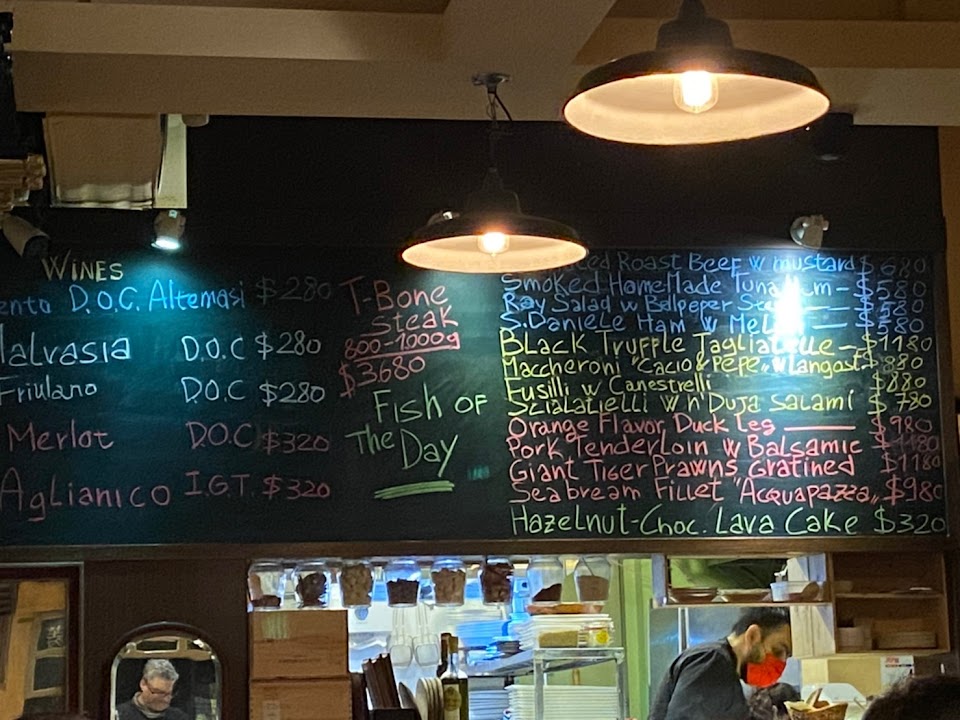 WINES
D.O.C. Altemasi $280
Malvasia D.O.C $280
Friulano D.O.C $280
Merlot D.O.C $320
Aglianico I.G.T. $320
T-Bone
Steak
800-1000g
$3680
Fish of
The Day
Roast Beef w mustard $680
Smoked Home-Made Tuna
Ray Salad w Bellpeper
S. Daniele Ham w
Black Truffle Tagliatelle - $1180
Maccheroni "Cacio & Pepe" w Langost. $880
Fusilli w Canestrelli $880
Scialatielli w n'Duja Salami $780
Orange Flavor Duck Leg $980
Pork Tenderloin w Balsamic
Giant Tiger Prawns Gratined $1180
Seabream Fillet "Acquapazza" $980
Hazelnut-Choc. Lava Cake $320